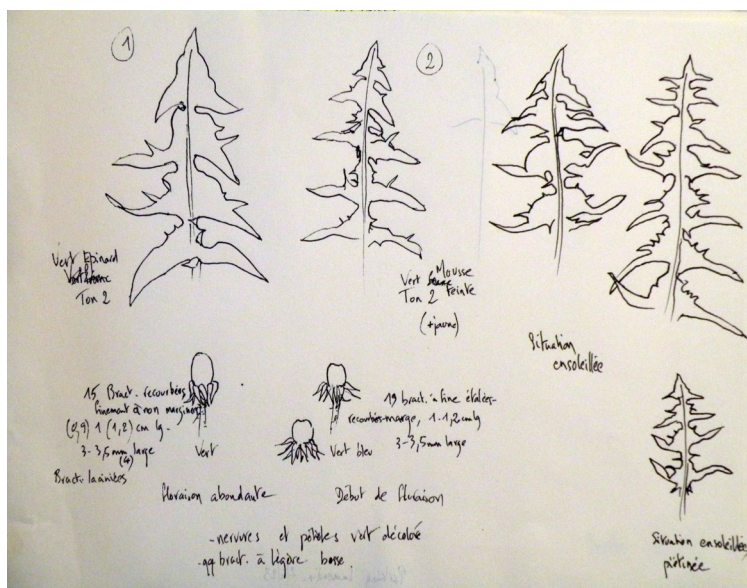 1
2
Vert Epinard
Ton 2
Vert Mousse
Ton 2 teinte
(+ jaune)
Situation
ensoleillée
15 Bract. recourbées
finement à non marginées
(0,9) 1 (1,2) cm lg.
3-3,5 mm large
(4)
Bract. laciniées
Vert
floraison abondante
19 bract. à fine étalées-
recourbées-marge, 1-1,2 cm lg
3-3,5 mm large
Vert bleu
Début de floraison
Situation ensoleillée
piétinée
- nervures et pétioles vert décoloré
- qq bract. à légère bosse